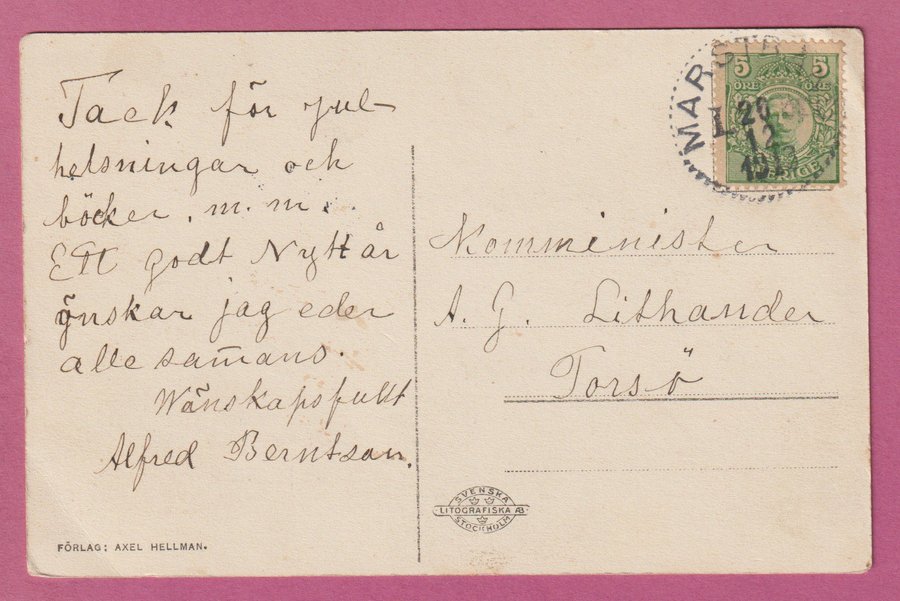 Tack för jul-
helsningar och
böcker. m. m.
Ett godt Nytt år
önskar jag eder
alle samans.
Wänskapsfullt
Alfred Berntson.
FÖRLAG: AXEL HELLMAN.
5 5
ÖRE ÖRE
SVERIGE
L 20
12
Komminister
A. G. Lithander
Torsö
SVENSKA
LITOGRAFISKA AB
STOCKHOLM